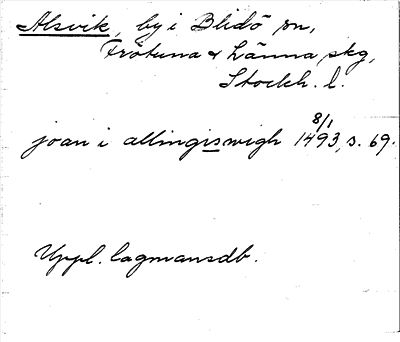 Alsvik, by i Blidö sn,
Frötuna & Länna skg,
Stockh. l.
joan i allingiswigh 8/1 1493, s. 69.
Uppl. lagmansdb.